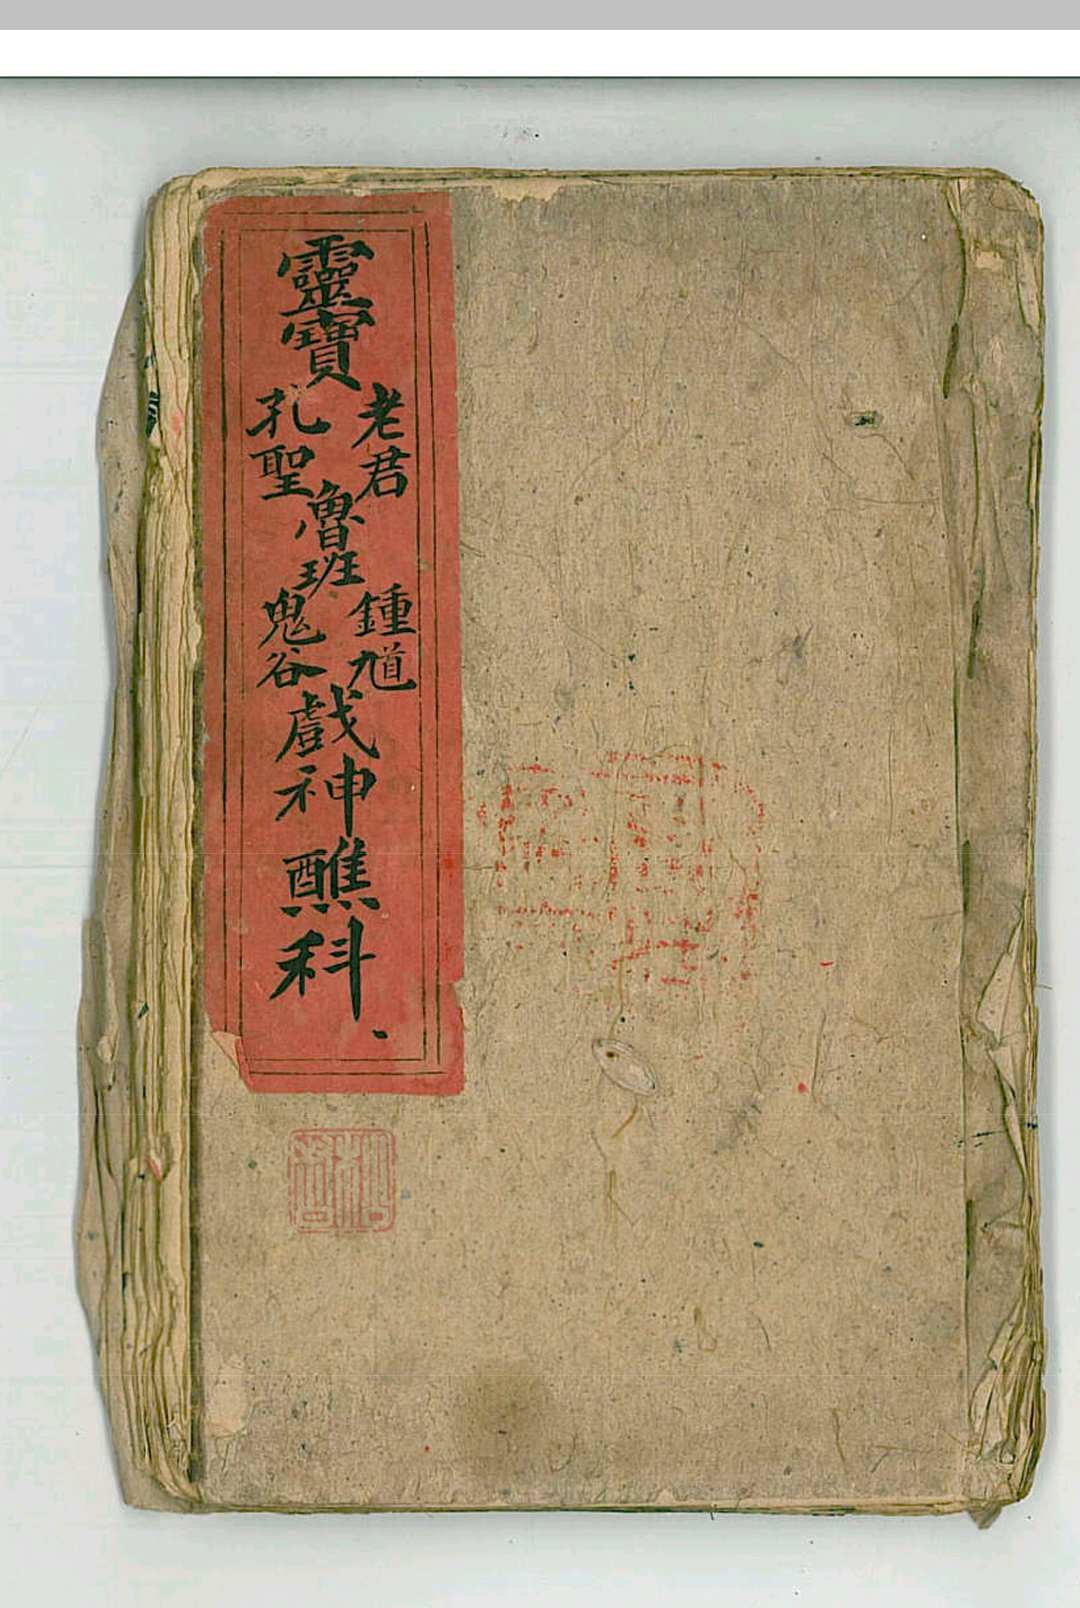 靈寶
老君
孔聖
魯班
鍾馗
鬼谷
戲神醮科